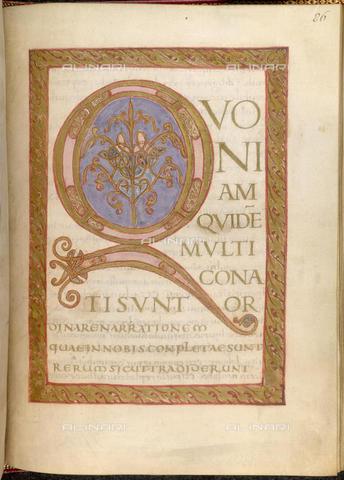 86
QVO
NI
AM
QVIDĒ
MVLTI
CONA
TISVNT OR
DINARENARRATIONEM
QUAEINNOBISCONPLETAESUNT
RERUMSICUTTRADIDERUNT
ALINARI
ALINARI
ALINARI
ALINARI
ALINARI
ALINARI